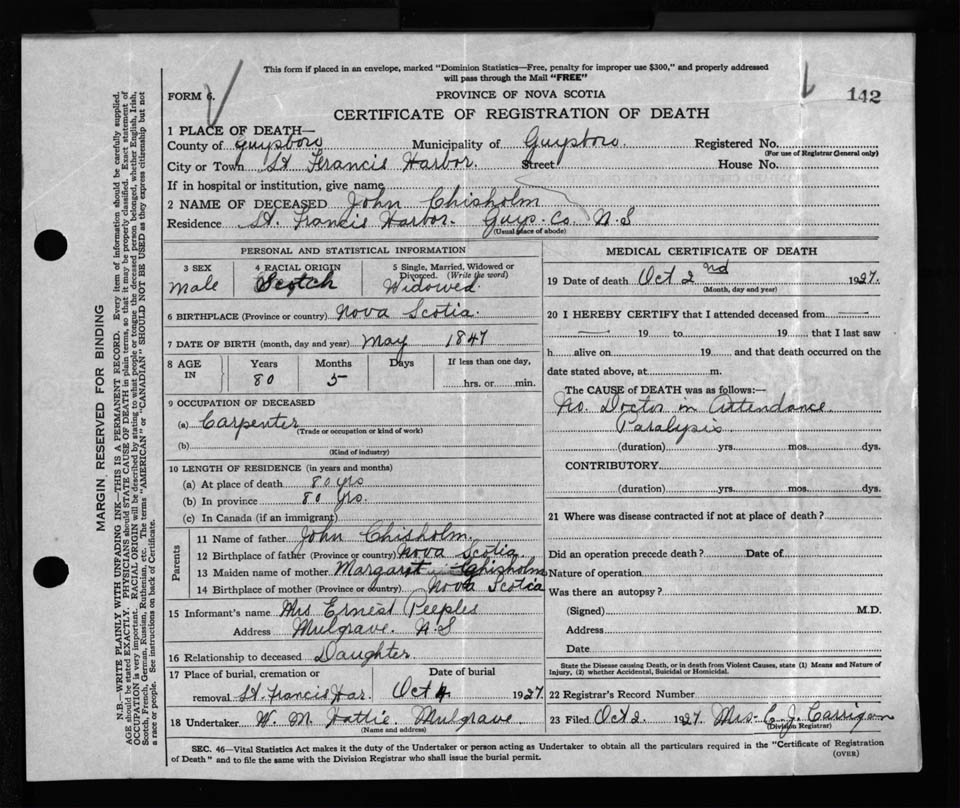 This form if placed in an envelope, marked "Dominion Statistics—Free, penalty for improper use $300," and properly addressed
will pass through the Mail "FREE"
FORM 6.
PROVINCE OF NOVA SCOTIA
142
CERTIFICATE OF REGISTRATION OF DEATH
1 PLACE OF DEATH—
County of Guysboro Municipality of Guysboro. Registered No.
(For use of Registrar General only)
City or Town St. Francis Harbor. Street House No.
If in hospital or institution, give name
2 NAME OF DECEASED John Chisholm
Residence St. Francis Harbor. Guys. Co. N.S
(Usual place of abode)
PERSONAL AND STATISTICAL INFORMATION
3 SEX 4 RACIAL ORIGIN 5 Single, Married, Widowed or
Divorced. (Write the word)
Male Scotch Widowed.
6 BIRTHPLACE (Province or country) Nova Scotia.
7 DATE OF BIRTH (month, day and year) May 1847
8 AGE IN Years Months Days If less than one day,
80 5 hrs. or min.
9 OCCUPATION OF DECEASED
(a) Carpenter
(Trade or occupation or kind of work)
(b)
(Kind of industry)
10 LENGTH OF RESIDENCE (in years and months)
(a) At place of death 80 yrs
(b) In province 80 yrs.
(c) In Canada (if an immigrant)
Parents
11 Name of father John Chisholm.
12 Birthplace of father (Province or country) Nova Scotia.
13 Maiden name of mother Margaret Chisholm
14 Birthplace of mother (Province or country) Nova Scotia
15 Informant's name Mrs Ernest Peeples
Address Mulgrave. N.S
16 Relationship to deceased Daughter.
17 Place of burial, cremation or Date of burial
removal St. Francis Har. Oct 4 1927.
18 Undertaker W. M. Hattie. Mulgrave.
(Name and address)
MEDICAL CERTIFICATE OF DEATH
19 Date of death Oct 2nd 1927.
(Month, day and year)
20 I HEREBY CERTIFY that I attended deceased from
19 to 19 that I last saw
h alive on 19 and that death occurred on the
date stated above, at m.
The CAUSE of DEATH was as follows:—
No. Doctor in Attendance.
Paralysis
(duration) yrs. mos. dys.
CONTRIBUTORY
(duration) yrs. mos. dys.
21 Where was disease contracted if not at place of death?
Did an operation precede death? Date of
Nature of operation
Was there an autopsy?
(Signed) M.D.
Address
Date
State the Disease causing Death, or in death from Violent Causes, state (1) Means and Nature of
Injury, (2) whether Accidental, Suicidal or Homicidal.
22 Registrar's Record Number
23 Filed Oct 2. 1927 Mrs. E. J. Carrigan
(Division Registrar)
SEC. 46—Vital Statistics Act makes it the duty of the Undertaker or person acting as Undertaker to obtain all the particulars required in the "Certificate of Registration
of Death" and to file the same with the Division Registrar who shall issue the burial permit.
(OVER)
MARGIN RESERVED FOR BINDING
N.B.—WRITE PLAINLY WITH UNFADING INK—THIS IS A PERMANENT RECORD. Every item of information should be carefully supplied.
AGE should be stated EXACTLY. PHYSICIANS should STATE CAUSE OF DEATH in plain terms, so that it may be properly classified. Exact statement of
OCCUPATION is very important. RACIAL ORIGIN will be described by stating to what people or tongue the deceased person belonged, whether English, Irish,
Scotch, French, German, Russian, Ruthenian, etc. The terms "AMERICAN" or "CANADIAN" SHOULD NOT BE USED as they express citizenship but not
a race or people. See instructions on back of Certificate.